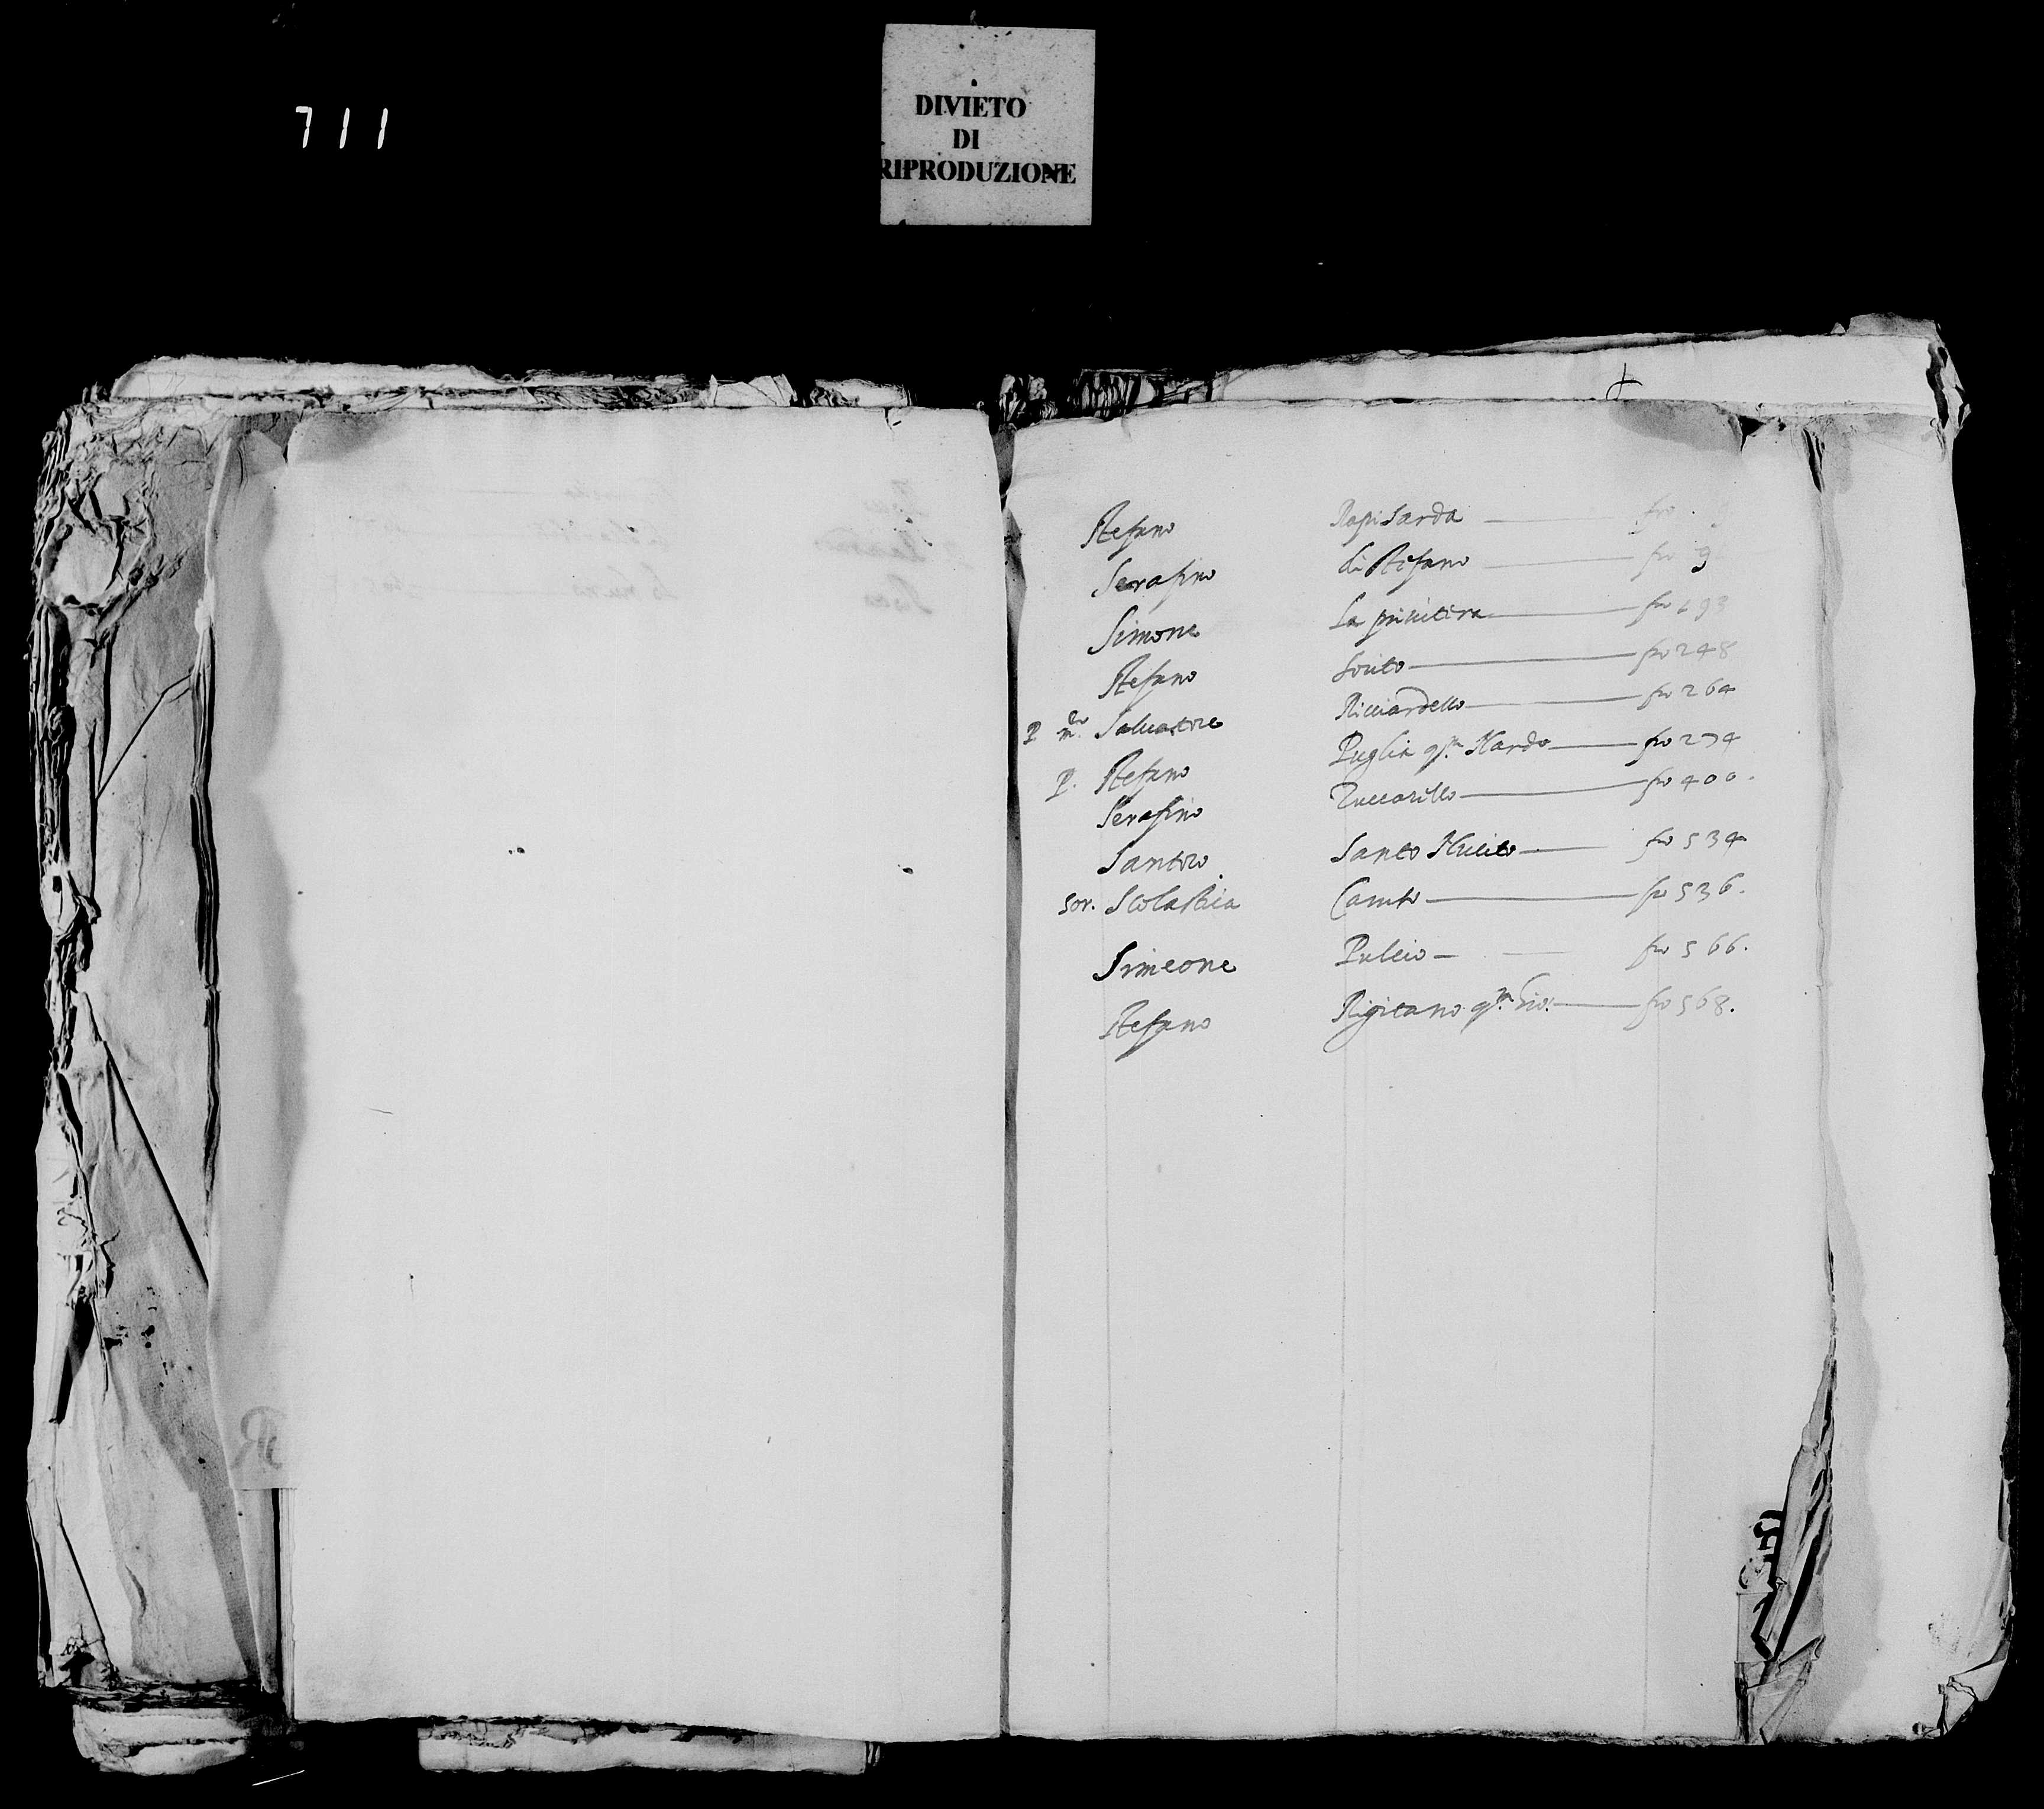 711
DIVIETO
DI
RIPRODUZIONE
Stefano Rapisarda fro
Serafino di Stefano fro 9
Simone La privitera fro 193
Stefano Souto fro 248
P. m.ro Salvatore Ricciardello fro 264
P. Stefano Puglia q.m Nardo fro 274
Serafino Zuccarello fro 400.
Santoro Santo fro 534
Sor. Scolastica Caruso fro 536.
Simeone Puleio fro 566.
Stefano Rigitano q.m Gio: fro 568.